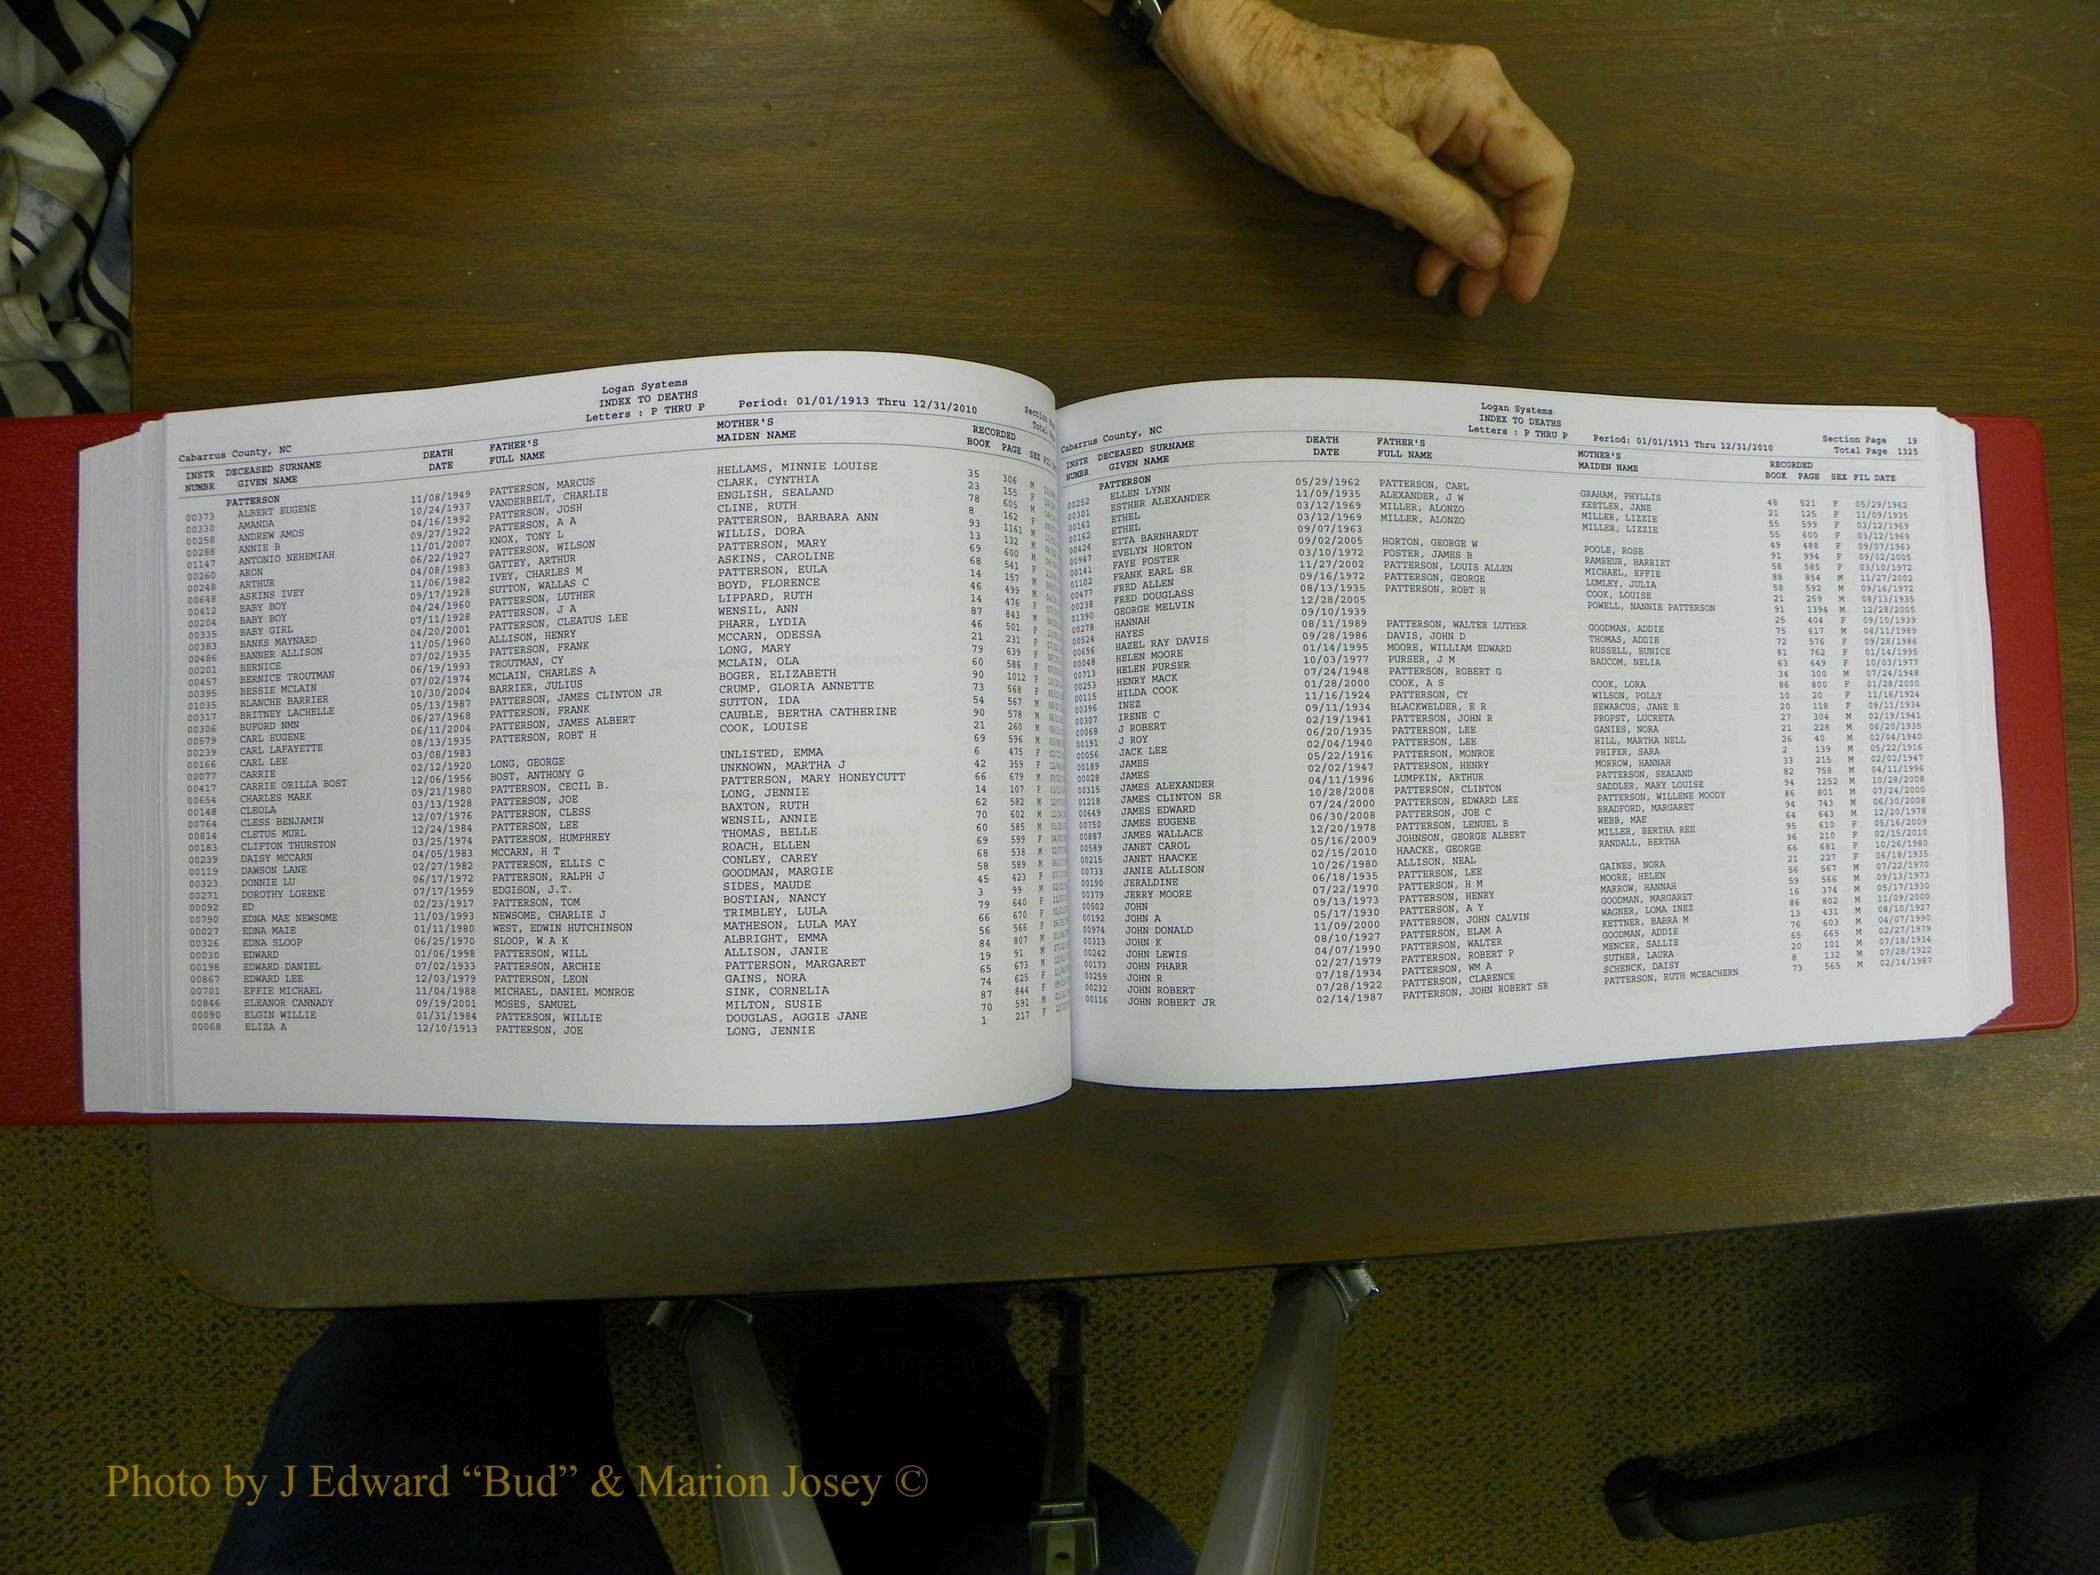 Logan Systems
INDEX TO DEATHS
Letters : P THRU P Period: 01/01/1913 Thru 12/31/2010
Cabarrus County, NC
INSTR NUMBR DECEASED SURNAME GIVEN NAME DEATH DATE FATHER'S FULL NAME MOTHER'S MAIDEN NAME RECORDED BOOK PAGE SEX
PATTERSON
00373 ALBERT EUGENE 11/08/1949 PATTERSON, MARCUS HELLAMS, MINNIE LOUISE 35 306 M
00330 AMANDA 10/24/1937 VANDERBELT, CHARLIE CLARK, CYNTHIA 23 155 F
00258 ANDREW AMOS 04/16/1992 PATTERSON, JOSH ENGLISH, SEALAND 78 605 M
00288 ANNIE B 09/27/1922 PATTERSON, A A CLINE, RUTH 8 162 F
01147 ANTONIO NEHEMIAH 11/01/2007 KNOX, TONY L PATTERSON, BARBARA ANN 93 1161 M
00260 ARON 06/22/1927 PATTERSON, WILSON WILLIS, DORA 13 132 M
00248 ARTHUR 04/08/1983 GATTEY, ARTHUR PATTERSON, MARY 69 600 M
00648 ASKINS IVEY 11/06/1982 IVEY, CHARLES M ASKINS, CAROLINE 68 541 F
00412 BABY BOY 09/17/1928 SUTTON, WALLAS C PATTERSON, EULA 14 157 M
00204 BABY BOY 04/24/1960 PATTERSON, LUTHER BOYD, FLORENCE 46 499 M
00335 BABY GIRL 07/11/1928 PATTERSON, J A LIPPARD, RUTH 14 476 F
00383 BANKS MAYNARD 04/20/2001 PATTERSON, CLEATUS LEE WENSIL, ANN 87 843 M
00486 BANNER ALLISON 11/05/1960 ALLISON, HENRY PHARR, LYDIA 46 501 F
00201 BERNICE 07/02/1935 PATTERSON, FRANK MCCARN, ODESSA 21 231 F
00457 BERNICE TROUTMAN 06/19/1993 TROUTMAN, CY LONG, MARY 79 639 F
00395 BESSIE MCLAIN 07/02/1974 MCLAIN, CHARLES A MCLAIN, OLA 60 586 F
01035 BLANCHE BARRIER 10/30/2004 BARRIER, JULIUS BOGER, ELIZABETH 90 1012 F
00317 BRITNEY LACHELLE 05/13/1987 PATTERSON, JAMES CLINTON JR CRUMP, GLORIA ANNETTE 73 568 F
00306 BUFORD NMN 06/27/1968 PATTERSON, FRANK SUTTON, IDA 54 567 M
00579 CARL EUGENE 06/11/2004 PATTERSON, JAMES ALBERT CAUBLE, BERTHA CATHERINE 90 578 M
00239 CARL LAFAYETTE 08/13/1935 PATTERSON, ROBT H COOK, LOUISE 21 260 M
00166 CARL LEE 03/08/1983 69 596 M
00077 CARRIE 02/12/1920 LONG, GEORGE UNLISTED, EMMA 6 475 F
00417 CARRIE ORILLA BOST 12/06/1956 BOST, ANTHONY G UNKNOWN, MARTHA J 42 359 F
00654 CHARLES MARK 09/21/1980 PATTERSON, CECIL B. PATTERSON, MARY HONEYCUTT 66 679 M
00148 CLEOLA 03/13/1928 PATTERSON, JOE LONG, JENNIE 14 107 F
00764 CLESS BENJAMIN 12/07/1976 PATTERSON, CLESS BAXTON, RUTH 62 582 M
00814 CLETUS MURL 12/24/1984 PATTERSON, LEE WENSIL, ANNIE 70 602 M
00183 CLIFTON THURSTON 03/25/1974 PATTERSON, HUMPHREY THOMAS, BELLE 60 585 M
00239 DAISY MCCARN 04/05/1983 MCCARN, H T ROACH, ELLEN 69 599 F
00119 DAWSON LANE 02/27/1982 PATTERSON, ELLIS C CONLEY, CAREY 68 538 M
00323 DONNIE LU 06/17/1972 PATTERSON, RALPH J GOODMAN, MARGIE 58 589 M
00271 DOROTHY LORENE 07/17/1959 EDGISON, J.T. SIDES, MAUDE 45 423 F
00092 ED 02/23/1917 PATTERSON, TOM BOSTIAN, NANCY 3 99 M
00790 EDNA MAE NEWSOME 11/03/1993 NEWSOME, CHARLIE J TRIMBLEY, LULA 79 640 F
00027 EDNA MAIE 01/11/1980 WEST, EDWIN HUTCHINSON MATHESON, LULA MAY 66 670 F
00326 EDNA SLOOP 06/25/1970 SLOOP, W A K ALBRIGHT, EMMA 56 566 F
00030 EDWARD 01/06/1998 PATTERSON, WILL ALLISON, JANIE 84 807 M
00198 EDWARD DANIEL 07/02/1933 PATTERSON, ARCHIE PATTERSON, MARGARET 19 91 M
00867 EDWARD LEE 12/03/1979 PATTERSON, LEON GAINS, NORA 65 673 M
00701 EFFIE MICHAEL 11/04/1988 MICHAEL, DANIEL MONROE SINK, CORNELIA 74 625 F
00846 ELEANOR CANNADY 09/19/2001 MOSES, SAMUEL MILTON, SUSIE 87 844 F
00090 ELGIN WILLIE 01/31/1984 PATTERSON, WILLIE DOUGLAS, AGGIE JANE 70 591 M
00068 ELIZA A 12/10/1913 PATTERSON, JOE LONG, JENNIE 1 217 F
Logan Systems
INDEX TO DEATHS
Letters : P THRU P Period: 01/01/1913 Thru 12/31/2010
Section Page 19
Total Page 1325
Cabarrus County, NC
INSTR NUMBR DECEASED SURNAME GIVEN NAME DEATH DATE FATHER'S FULL NAME MOTHER'S MAIDEN NAME RECORDED BOOK PAGE SEX FIL DATE
PATTERSON
00252 ELLEN LYNN 05/29/1962 PATTERSON, CARL GRAHAM, PHYLLIS 48 521 F 05/29/1962
00301 ESTHER ALEXANDER 11/09/1935 ALEXANDER, J W KESTLER, JANE 21 125 F 11/09/1935
00161 ETHEL 03/12/1969 MILLER, ALONZO MILLER, LIZZIE 55 599 F 03/12/1969
00162 ETHEL 03/12/1969 MILLER, ALONZO MILLER, LIZZIE 55 600 F 03/12/1969
00424 ETTA BARNHARDT 09/07/1963 49 488 F 09/07/1963
00947 EVELYN HORTON 09/02/2005 HORTON, GEORGE W POOLE, ROSE 91 994 F 09/02/2005
00141 FAYE FOSTER 03/10/1972 FOSTER, JAMES B RAMSEUR, HARRIET 58 585 F 03/10/1972
01102 FRANK EARL SR 11/27/2002 PATTERSON, LOUIS ALLEN MICHAEL, EFFIE 88 854 M 11/27/2002
00477 FRED ALLEN 09/16/1972 PATTERSON, GEORGE LUMLEY, JULIA 58 592 M 09/16/1972
00238 FRED DOUGLASS 08/13/1935 PATTERSON, ROBT H COOK, LOUISE 21 259 M 08/13/1935
01390 GEORGE MELVIN 12/28/2005 POWELL, NANNIE PATTERSON 91 1394 M 12/28/2005
00278 HANNAH 09/10/1939 25 404 F 09/10/1939
00524 HAYES 08/11/1989 PATTERSON, WALTER LUTHER GOODMAN, ADDIE 75 617 M 08/11/1989
00656 HAZEL RAY DAVIS 09/28/1986 DAVIS, JOHN D THOMAS, ADDIE 72 576 F 09/28/1986
00048 HELEN MOORE 01/14/1995 MOORE, WILLIAM EDWARD RUSSELL, EUNICE 81 762 F 01/14/1995
00713 HELEN PURSER 10/03/1977 PURSER, J M BAUCOM, NELIA 63 649 F 10/03/1977
00253 HENRY MACK 07/24/1948 PATTERSON, ROBERT G 34 300 M 07/24/1948
00115 HILDA COOK 01/28/2000 COOK, A S COOK, LORA 86 800 F 01/28/2000
00396 INEZ 11/16/1924 PATTERSON, CY WILSON, POLLY 10 20 F 11/16/1924
00307 IRENE C 09/11/1934 BLACKWELDER, E R SEWARCUS, JANE E 20 118 F 09/11/1934
00068 J ROBERT 02/19/1941 PATTERSON, JOHN R PROPST, LUCRETA 27 304 M 02/19/1941
00191 J ROY 06/20/1935 PATTERSON, LEE GANIES, NORA 21 228 M 06/20/1935
00056 JACK LEE 02/04/1940 PATTERSON, LEE HILL, MARTHA NELL 26 40 M 02/04/1940
00189 JAMES 05/22/1916 PATTERSON, MONROE PHIFER, SARA 2 139 M 05/22/1916
00028 JAMES 02/02/1947 PATTERSON, HENRY MORROW, HANNAH 33 215 M 02/02/1947
00315 JAMES ALEXANDER 04/11/1996 LUMPKIN, ARTHUR PATTERSON, SEALAND 82 758 M 04/11/1996
01218 JAMES CLINTON SR 10/28/2008 PATTERSON, CLINTON SADDLER, MARY LOUISE 94 1252 M 10/28/2008
00649 JAMES EDWARD 07/24/2000 PATTERSON, EDWARD LEE PATTERSON, WILLENE MOODY 86 801 M 07/24/2000
00750 JAMES EUGENE 06/30/2008 PATTERSON, JOE C BRADFORD, MARGARET 94 743 M 06/30/2008
00887 JAMES WALLACE 12/20/1978 PATTERSON, LENUEL B WEBB, MAE 64 643 M 12/20/1978
00589 JANET CAROL 05/16/2009 JOHNSON, GEORGE ALBERT MILLER, BERTHA REE 95 610 F 05/16/2009
00215 JANET HAACKE 02/15/2010 HAACKE, GEORGE RANDALL, BERTHA 96 210 F 02/15/2010
00733 JANIE ALLISON 10/26/1980 ALLISON, NEAL 66 681 F 10/26/1980
00190 JERALDINE 06/18/1935 PATTERSON, LEE GAINES, NORA 21 227 F 06/18/1935
00379 JERRY MOORE 07/22/1970 PATTERSON, H M MOORE, HELEN 56 567 M 07/22/1970
00502 JOHN 09/13/1973 PATTERSON, HENRY MARROW, HANNAH 59 566 M 09/13/1973
00192 JOHN A 05/17/1930 PATTERSON, A Y GOODMAN, MARGARET 16 374 M 05/17/1930
00974 JOHN DONALD 11/09/2000 PATTERSON, JOHN CALVIN WAGNER, LOMA INEZ 86 802 M 11/09/2000
00313 JOHN K 08/10/1927 PATTERSON, ELAM A KETTNER, BABRA M 13 431 M 08/10/1927
00242 JOHN LEWIS 04/07/1990 PATTERSON, WALTER GOODMAN, ADDIE 76 603 M 04/07/1990
00173 JOHN PHARR 02/27/1979 PATTERSON, ROBERT P MENCER, SALLIE 65 665 M 02/27/1979
00259 JOHN R 07/18/1934 PATTERSON, WM A SUTHER, LAURA 20 101 M 07/18/1934
00232 JOHN ROBERT 07/28/1922 PATTERSON, CLARENCE SCHENCK, DAISY 8 132 M 07/28/1922
00116 JOHN ROBERT JR 02/14/1987 PATTERSON, JOHN ROBERT SR PATTERSON, RUTH MCEACHERN 73 565 M 02/14/1987
Photo by J Edward “Bud” & Marion Josey ©